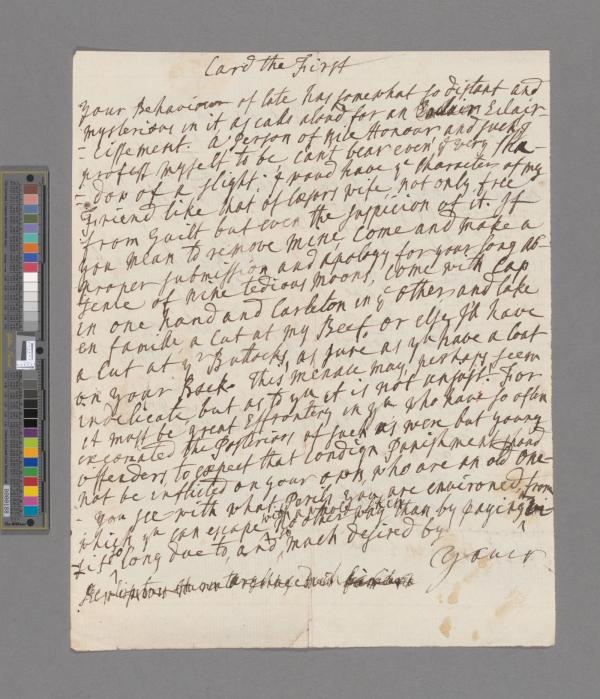 Card the First
Your Behaviour of late has somewhat so distant and
mysterious in it, as calls aloud for an Eclair-
-cissement. a Person of nice Honour and such I
profess myself to be cant bear even yᵉ very Sha-
-dow of a slight. I woud have yᵉ Character of my
Friend like that of Cæsars wife, not only free
from Guilt but even the suspicion of it. If
you mean to remove mine come and make a
proper submission and apology for your long ab-
sence of nine tedious moons, come with Cap
in one hand and Carleton in yᵉ other, and take
en famille a Cut at my Beef, or else I'll have
a Cut at yʳ Buttocks, as sure as yᵘ have a Coat
on your Back. This menace may, perhaps, seem
indelicate but as to yᵘ it is not unjust. For
it must be great Effrontery in yᵘ who have so often
excoriated the Posteriors of such as were but young
offenders, to expect that condign Punishment shoud
not be inflicted on your own, who are an old one-
You see with what Perils you are environed, from
which yᵘ can escape no other way than by paying
so long due to, and, much desired by
Yours